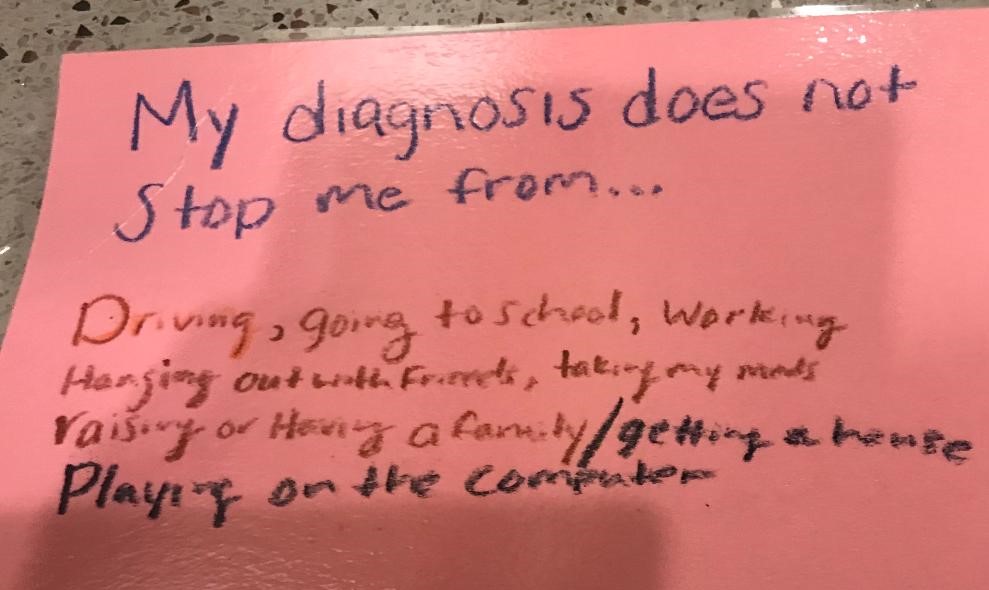 My diagnosis does not
Stop me from...
Driving, going to School, Working
Hanging out with Friends, taking my meds
raising or Having a family/getting a house
Playing on the computer